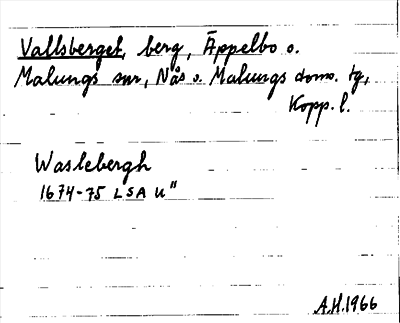 Vallsberget, berg, Äppelbo o.
Malungs snr, Nås o. Malungs doms. tg,
Kopp. l.
Waslebergh
1674-75 LSA U"
A.H. 1966